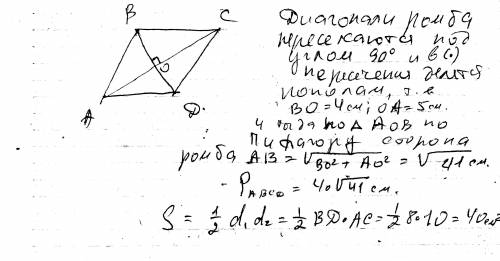 B
C
A
D
Диагонали ромба
пересекаются под
углом 90° и в (·)
пересечения делятся
пополам, т.е
BO = 4 см; OA = 5 см.
из Δ AOB по
Пифагору сторона
ромба AB = √BO² + AO² = √41 см.
P ABCD = 4·√41 см.
S = 1/2 d₁ d₂ = 1/2 BD·AC = 1/2 8·10 = 40 см²